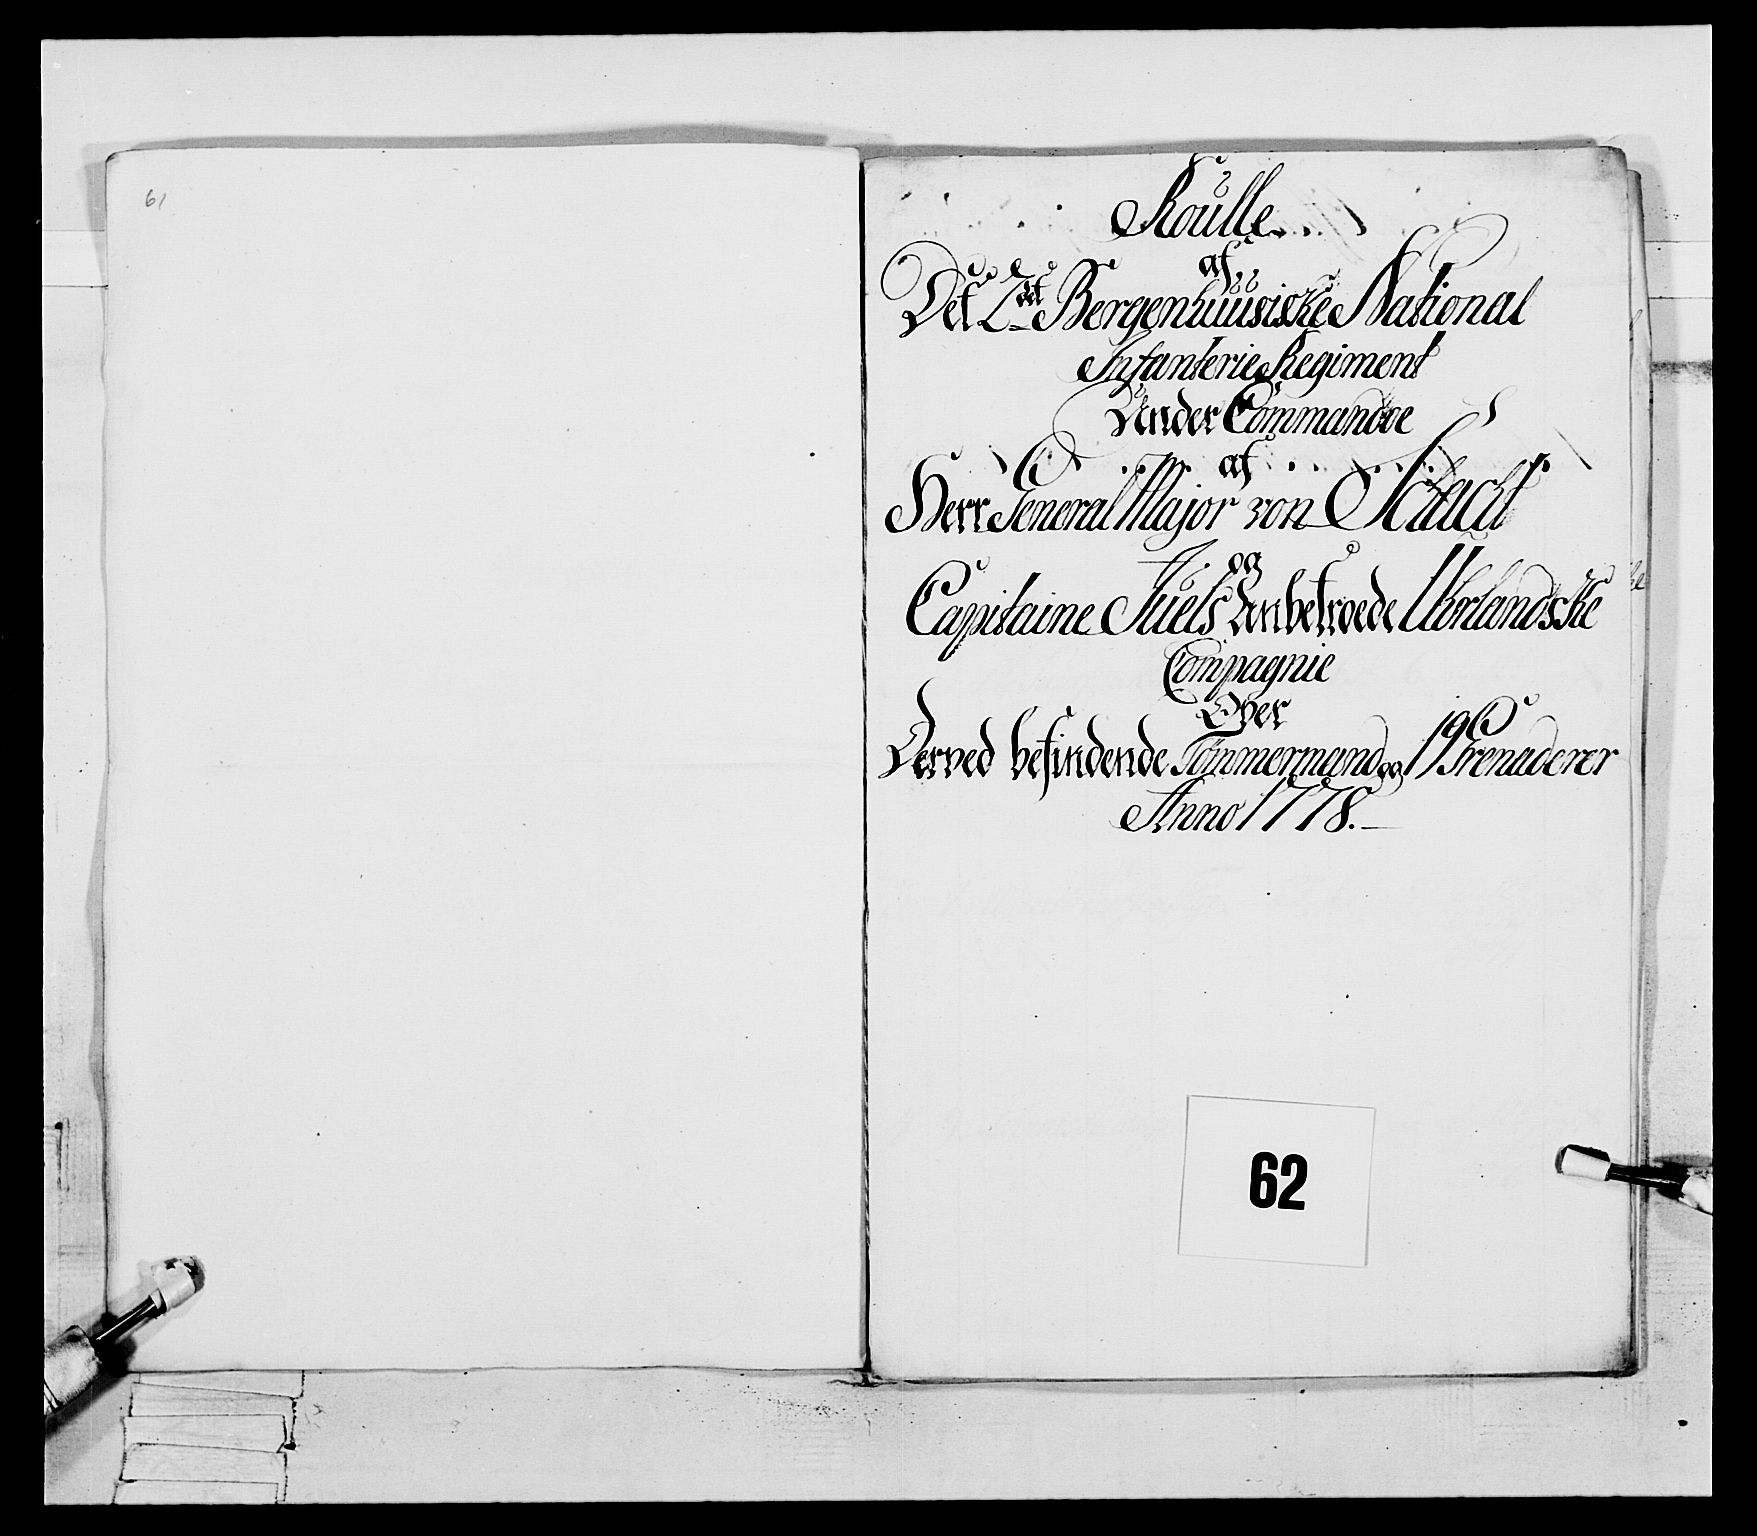 61
Roulle
af
Det 2det Bergenhuusiske National
Infanterie Regiment
Under Commandoe
af
Herr General Major von Schacht
og
Capitaine Juels Anbetroede Urlandske
Compagnie
Over
Derved befindende Tömmermand og 19 Grenaderer
Anno 1778.
62